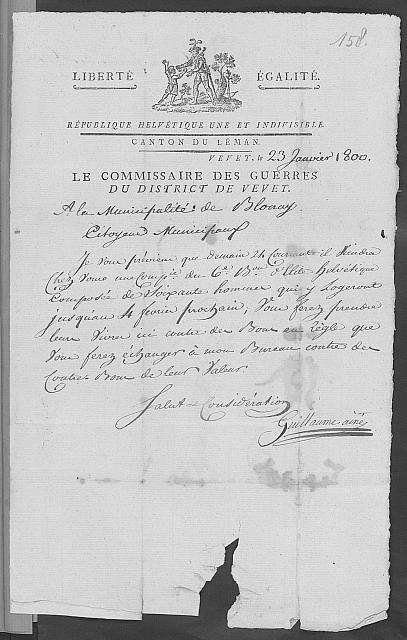 158.
LIBERTÉ ÉGALITÉ.
RÉPUBLIQUE HELVÉTIQUE UNE ET INDIVISIBLE.
CANTON DU LÉMAN.
VEVEY, le 23 Janvier 1800.
LE COMMISSAIRE DES GUERRES
DU DISTRICT DE VEVEY.
A la Municipalité de Blonay
Citoyens Municipaux
Je vous préviens que demain 24 Courant il viendra
chez vous une Comp.ie du 6.e B.on d'Elite helvétique
Composée de Soixante hommes qui y logeront
jusquau 4 fevrier prochain; Vous ferez prendre
leur Vivre ici contre des Bons en règle que
Vous ferez échanger à mon Bureau contre des
Contre Bons de leur Valeur
Salut & Considération
Guillaume ainé